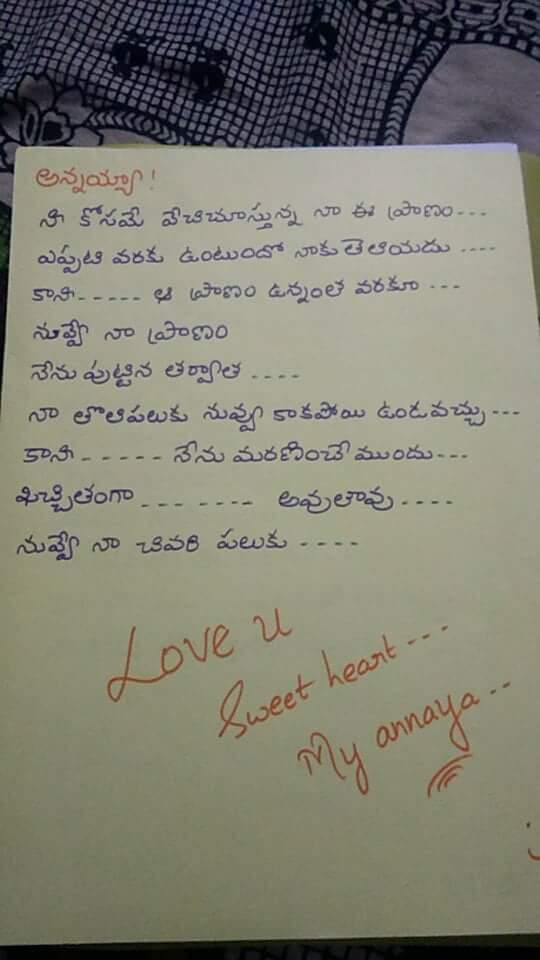 అన్నయ్యా!
నీ కోసమే వేచిచూస్తున్న నా ఈ ప్రాణం---
ఎప్పటి వరకు ఉంటుందో నాకు తెలియదు ----
కానీ----- ఆ ప్రాణం ఉన్నంత వరకూ ---
నువ్వే నా ప్రాణం
నేను పుట్టిన తర్వాత ----
నా తొలిపలుకు నువ్వు కాకపోయి ఉండవచ్చు---
కానీ ------ నేను మరణించే ముందు---
ఖచ్చితంగా --- ----- అవుతావు ----
నువ్వే నా చివరి పలుకు ----
Love u
Sweet heart ---
My annaya --